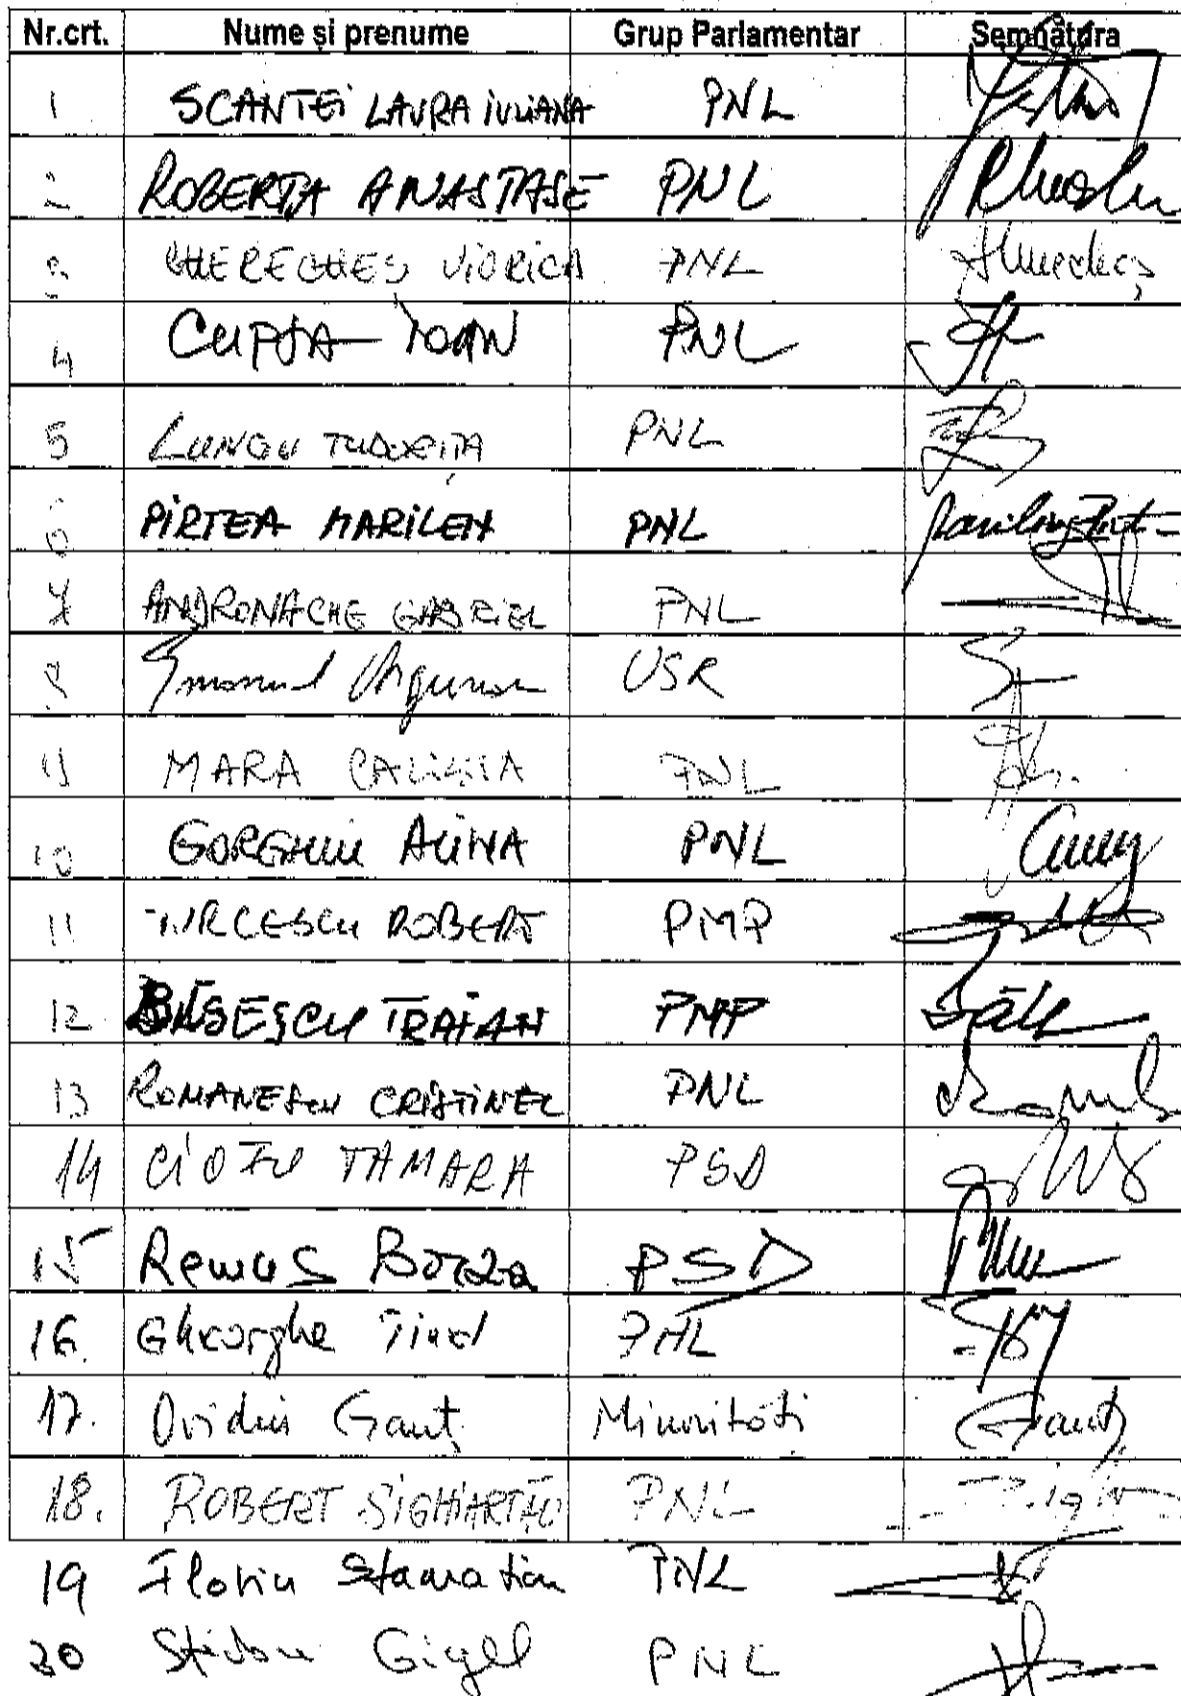 Nr.crt. Nume și prenume Grup Parlamentar Semnătura
1 SCANTEI LAURA IULIANA PNL
2 ROBERTA ANASTASE PNL
CHERECHEȘ VIORICA PNL
4 CUPȘA IOAN PNL
5 LUNGU TUDORIȚA PNL
6 PIRTEA MARILEN PNL
7 ANDRONACHE GABRIEL PNL
8 Emanuel Ungureanu USR
9 MARA CALISTA PNL
10 GORGHIU ALINA PNL
11 TURCESCU ROBERT PMP
12 BĂSESCU TRAIAN PMP
13 ROMANESCU CRISTINEL PNL
14 CIOFU TAMARA PSD
15 Remus Borza PSD
16. Gheorghe Tinel PNL
17. Ovidiu Ganț Minorități Ganț
18. ROBERT SIGHIARTĂU PNL
19 Florin Stamatian PNL
20 Știrbu Gigel PNL